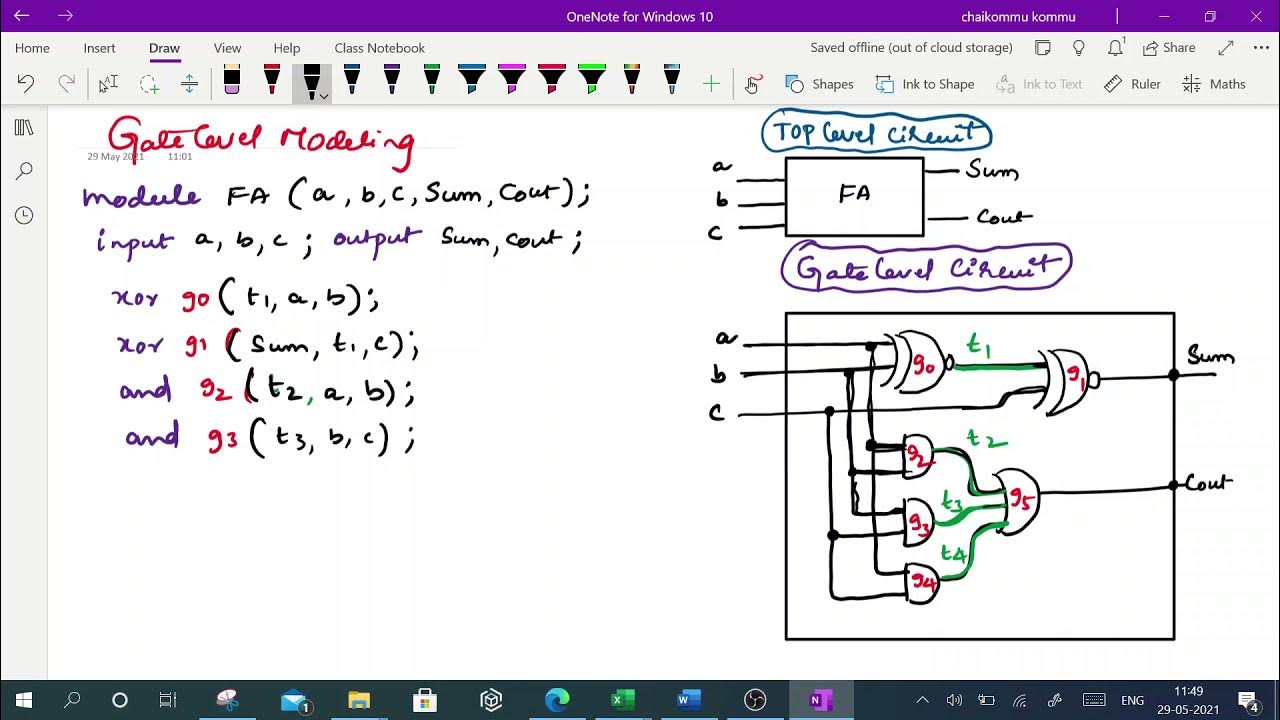 OneNote for Windows 10
chaikommu kommu
Home Insert Draw View Help Class Notebook
Saved offline (out of cloud storage)
1
Share
Shapes
Ink to Shape
Ink to Text
Ruler
Maths
Gate level Modeling
29 May 2021 11:01
module FA (a, b, c, Sum, Cout);
input a, b, c ; output Sum, Cout ;
xor g0 (t1, a, b);
xor g1 (Sum, t1, c);
and g2 (t2, a, b);
and g3 (t3, b, c) ;
TOP level circuit
a
b
c
FA
Sum
Cout
Gate level Circuit
a
b
c
g0
t1
g1
Sum
g2
t2
g3
t3
g4
t4
g5
Cout
1
ENG
11:49
29-05-2021
4